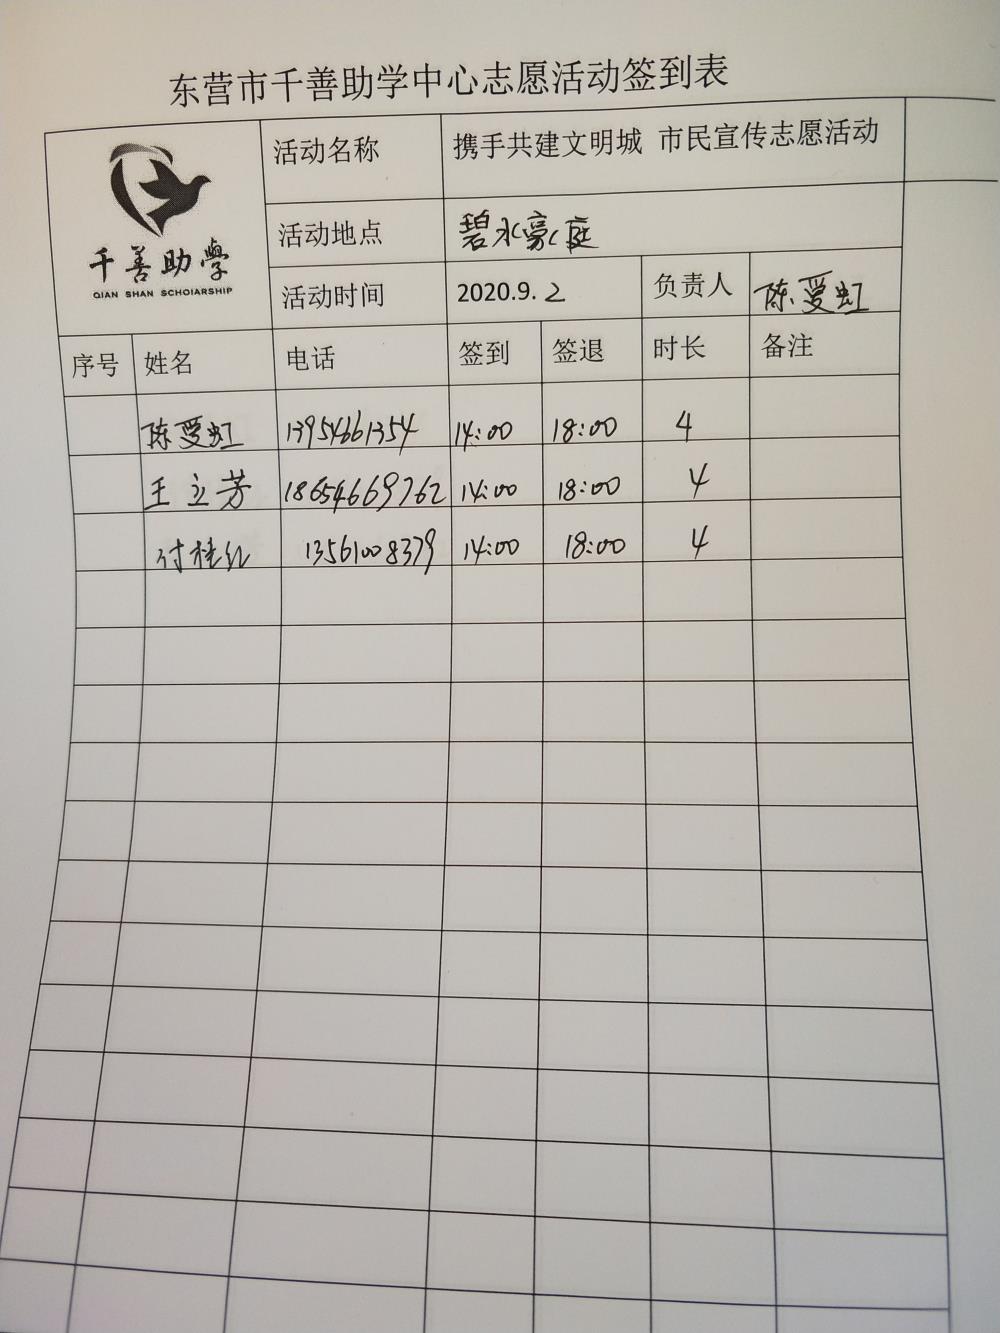 东营市千善助学中心志愿活动签到表
千善助學
QIAN SHAN SCHOIARSHIP
活动名称 携手共建文明城 市民宣传志愿活动
活动地点 碧水豪庭
活动时间 2020.9.2 负责人 陈爱虹
序号 姓名 电话 签到 签退 时长 备注
陈爱虹 13954661354 14:00 18:00 4
王立芳 18654669762 14:00 18:00 4
付桂红 13561008379 14:00 18:00 4